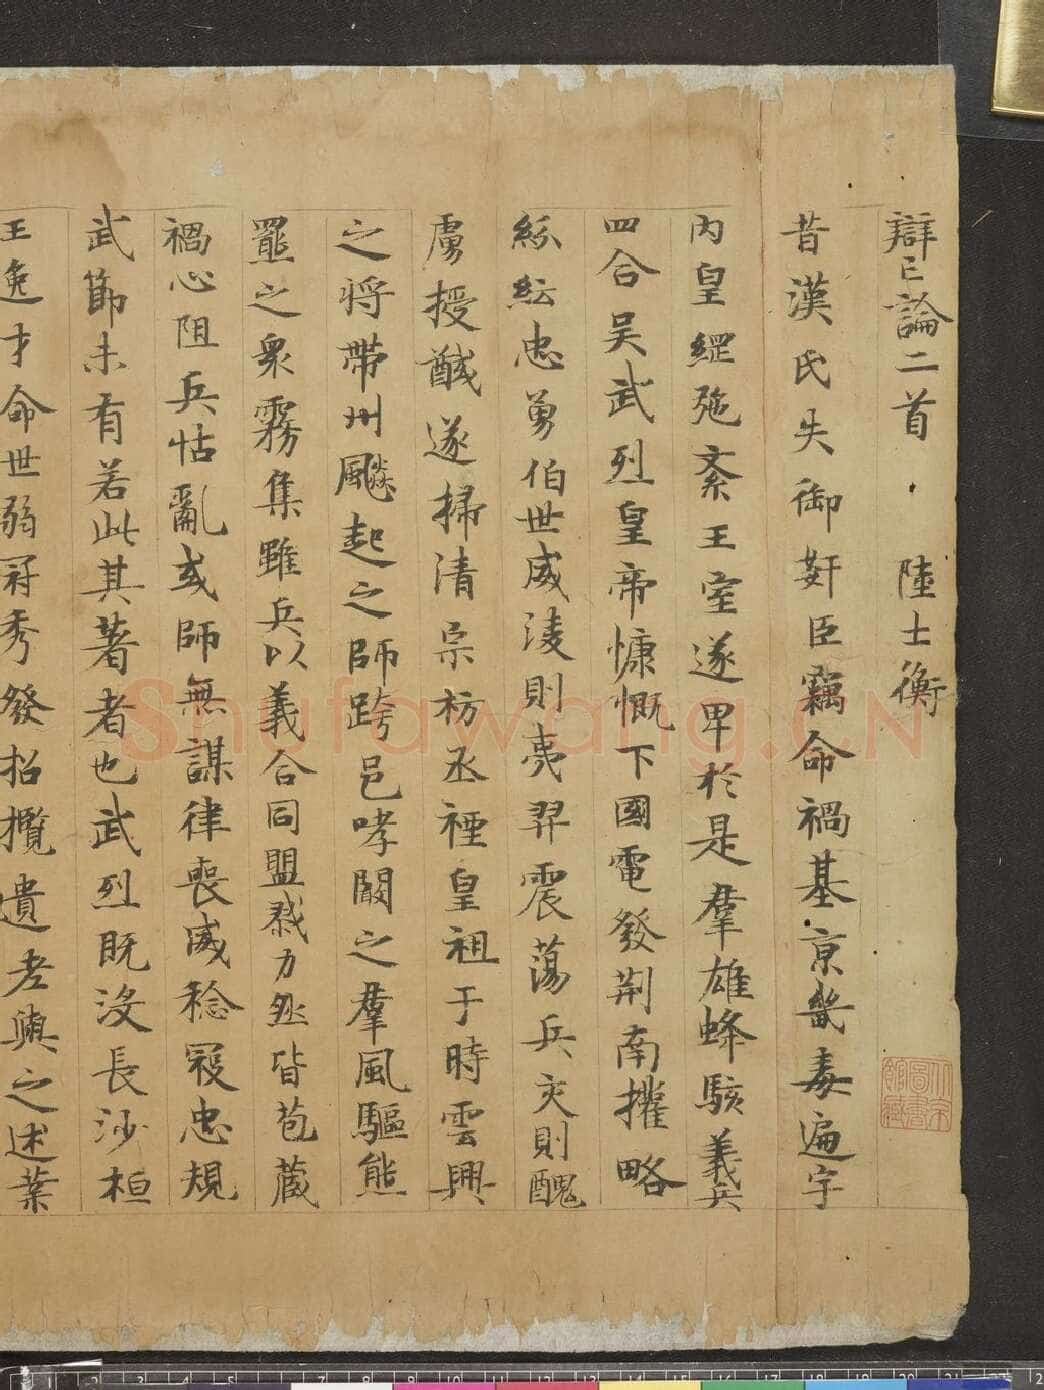 辯亡論二首 陸士衡
昔漢氏失御姧臣竊命禍基京畿毒遍宇
内皇綱弛紊王室遂卑於是羣雄蜂駭義兵
四合吴武烈皇帝慷慨下國電發荆南權略
紛紜忠勇伯世威淩則夷羿震蕩兵交則醜
虜授馘遂掃清宗枋丞禋皇祖于時雲興
之將帶州飈起之師跨邑哮闞之羣風驅熊
羆之衆霧集雖兵以義合同盟勠力然皆苞藏
禍心阻兵怙亂或師無謀律喪威稔寇忠規
武節未有若此其著者也武烈既没長沙桓
王逸才命世弱冠秀發招攬遺老與之述業
Shufawang.CN